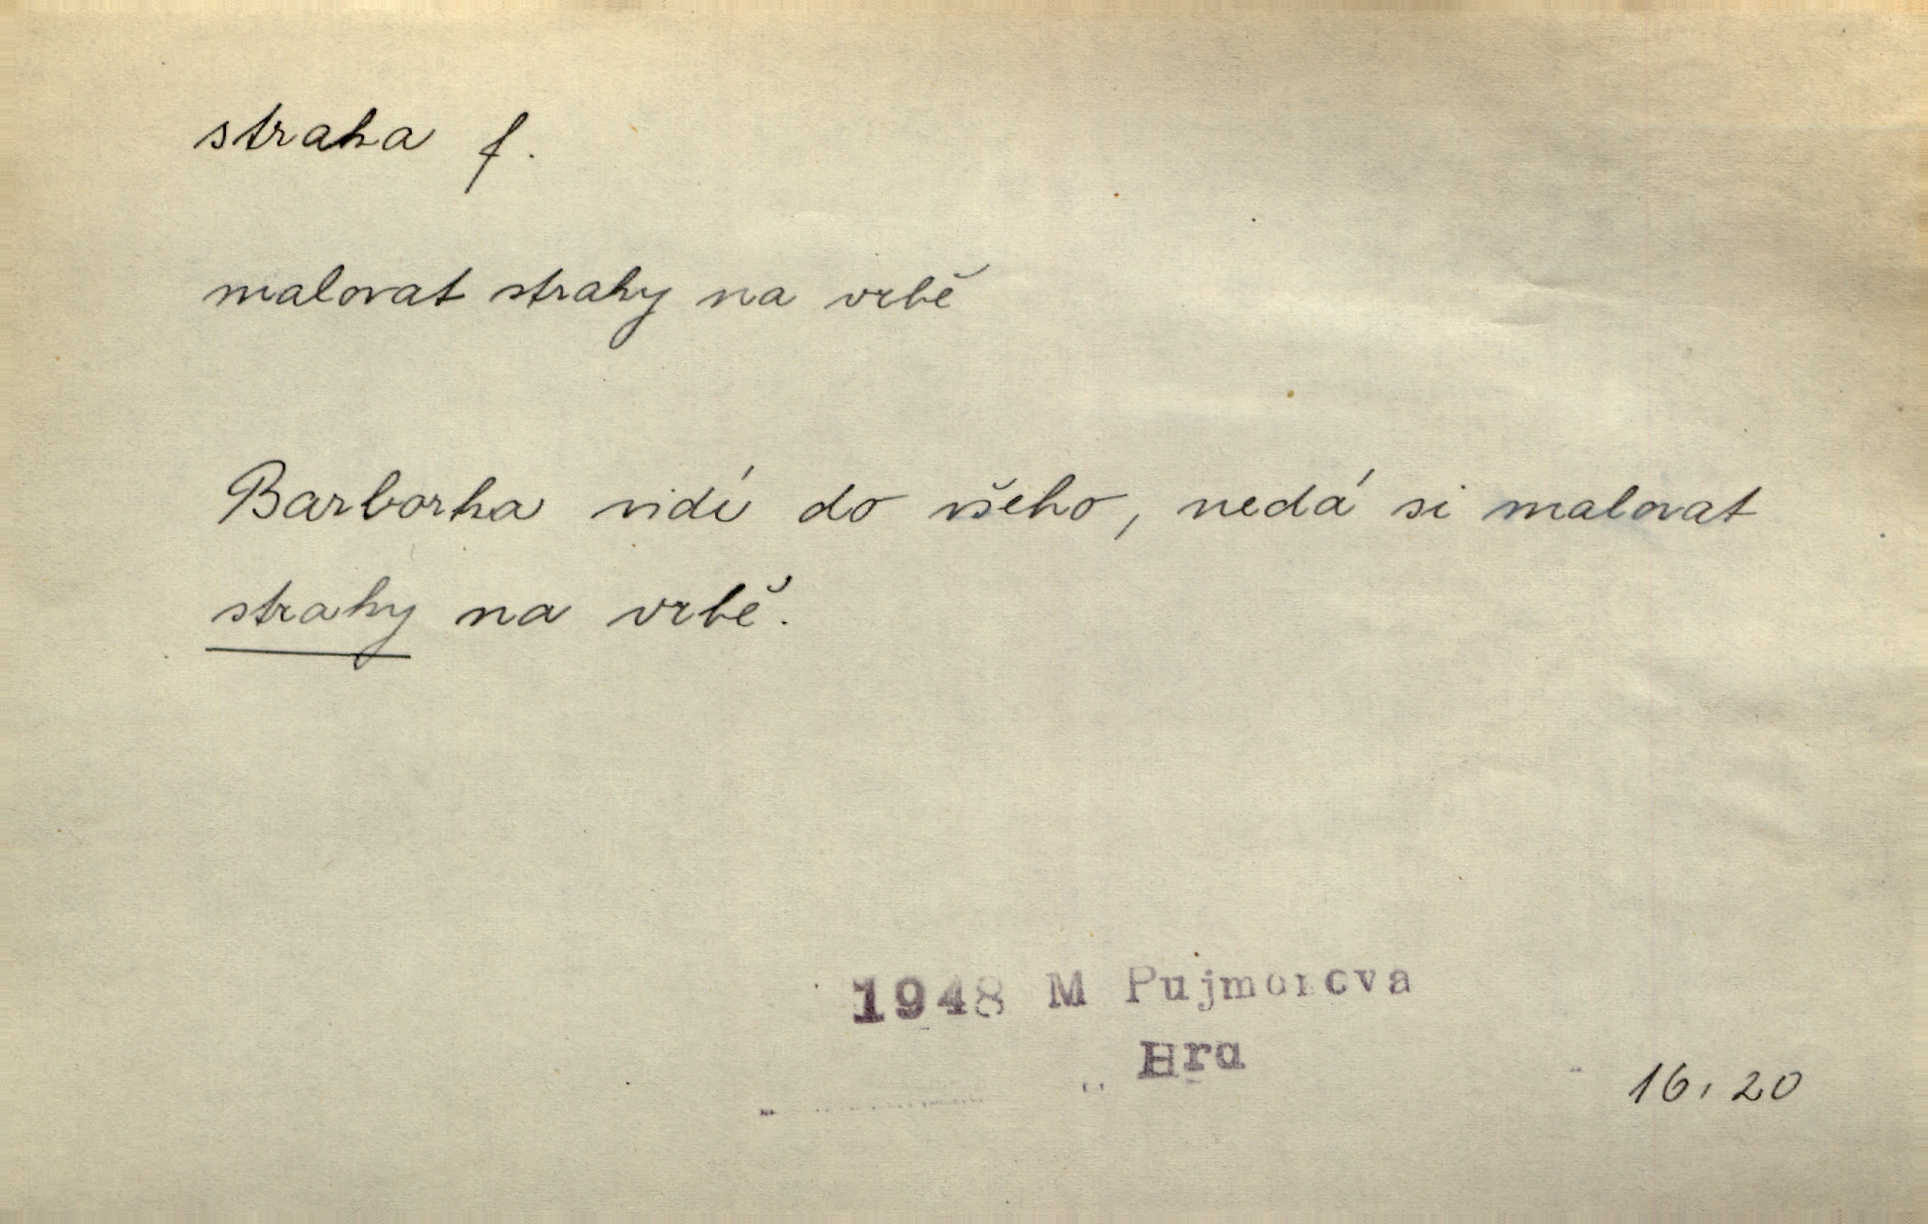 straka f.
malovat straky na vrbě
Barborka vidí do všeho, nedá si malovat
straky na vrbě.
1948 M Pujmanova
Hra
16, 20